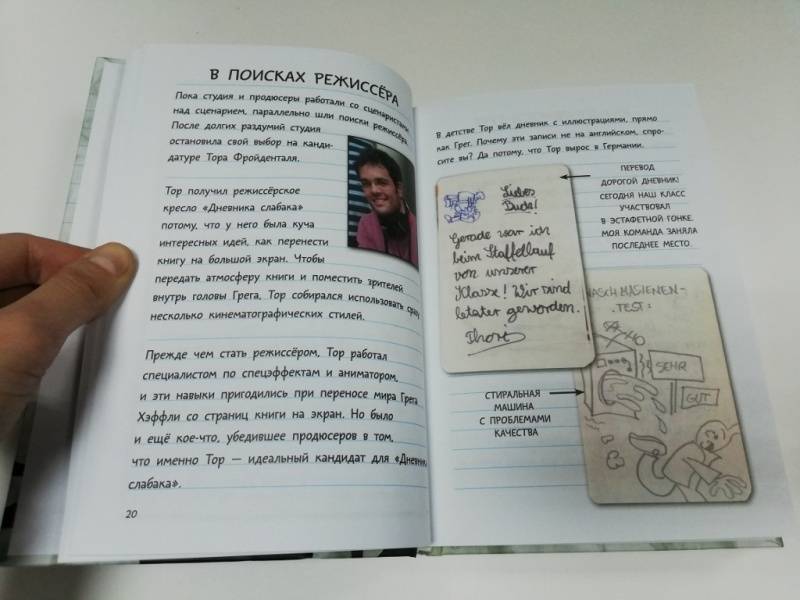 В ПОИСКАХ РЕЖИССЁРА
Пока студия и продюсеры работали со сценаристами
над сценарием, параллельно шли поиски режиссёра.
После долгих раздумий студия
остановила свой выбор на канди-
датуре Тора Фройденталя.
Тор получил режиссёрское
кресло «Дневника слабака»
потому, что у него была куча
интересных идей, как перенести
книгу на большой экран. Чтобы
передать атмосферу книги и поместить зрителей
внутрь головы Грега, Тор собирался использовать сразу
несколько кинематографических стилей.
Прежде чем стать режиссёром, Тор работал
специалистом по спецэффектам и аниматором,
и эти навыки пригодились при переносе мира Грега
Хэффли со страниц книги на экран. Но было
и ещё кое-что, убедившее продюсеров в том,
что именно Тор — идеальный кандидат для «Дневника
слабака».
20
В детстве Тор вёл дневник с иллюстрациями, прямо
как Грег. Почему эти записи не на английском, спро-
сите вы? Да потому, что Тор вырос в Германии.
Liebes
Buch!
Gerade war ich
beim Staffellauf
von unserer
Klasse! Wir sind
letzter geworden.
Thori
ПЕРЕВОД
ДОРОГОЙ ДНЕВНИК!
СЕГОДНЯ НАШ КЛАСС
УЧАСТВОВАЛ
В ЭСТАФЕТНОЙ ГОНКЕ.
МОЯ КОМАНДА ЗАНЯЛА
ПОСЛЕДНЕЕ МЕСТО.
WASCHMASIENEN-
TEST:
SEHR
GUT
СТИРАЛЬНАЯ
МАШИНА
С ПРОБЛЕМАМИ
КАЧЕСТВА